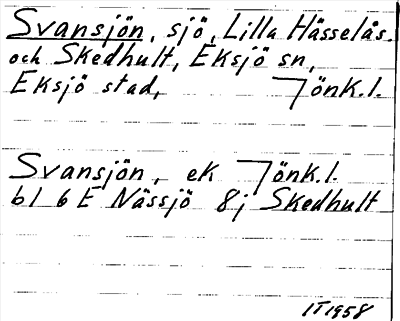 Svansjön, sjö, Lilla Hässelås.
och Skedhult, Eksjö sn,
Eksjö stad, Jönk.l.
Svansjön, ek Jönk.l.
bl 6E Nässjö 8j Skedhult
IT 1958